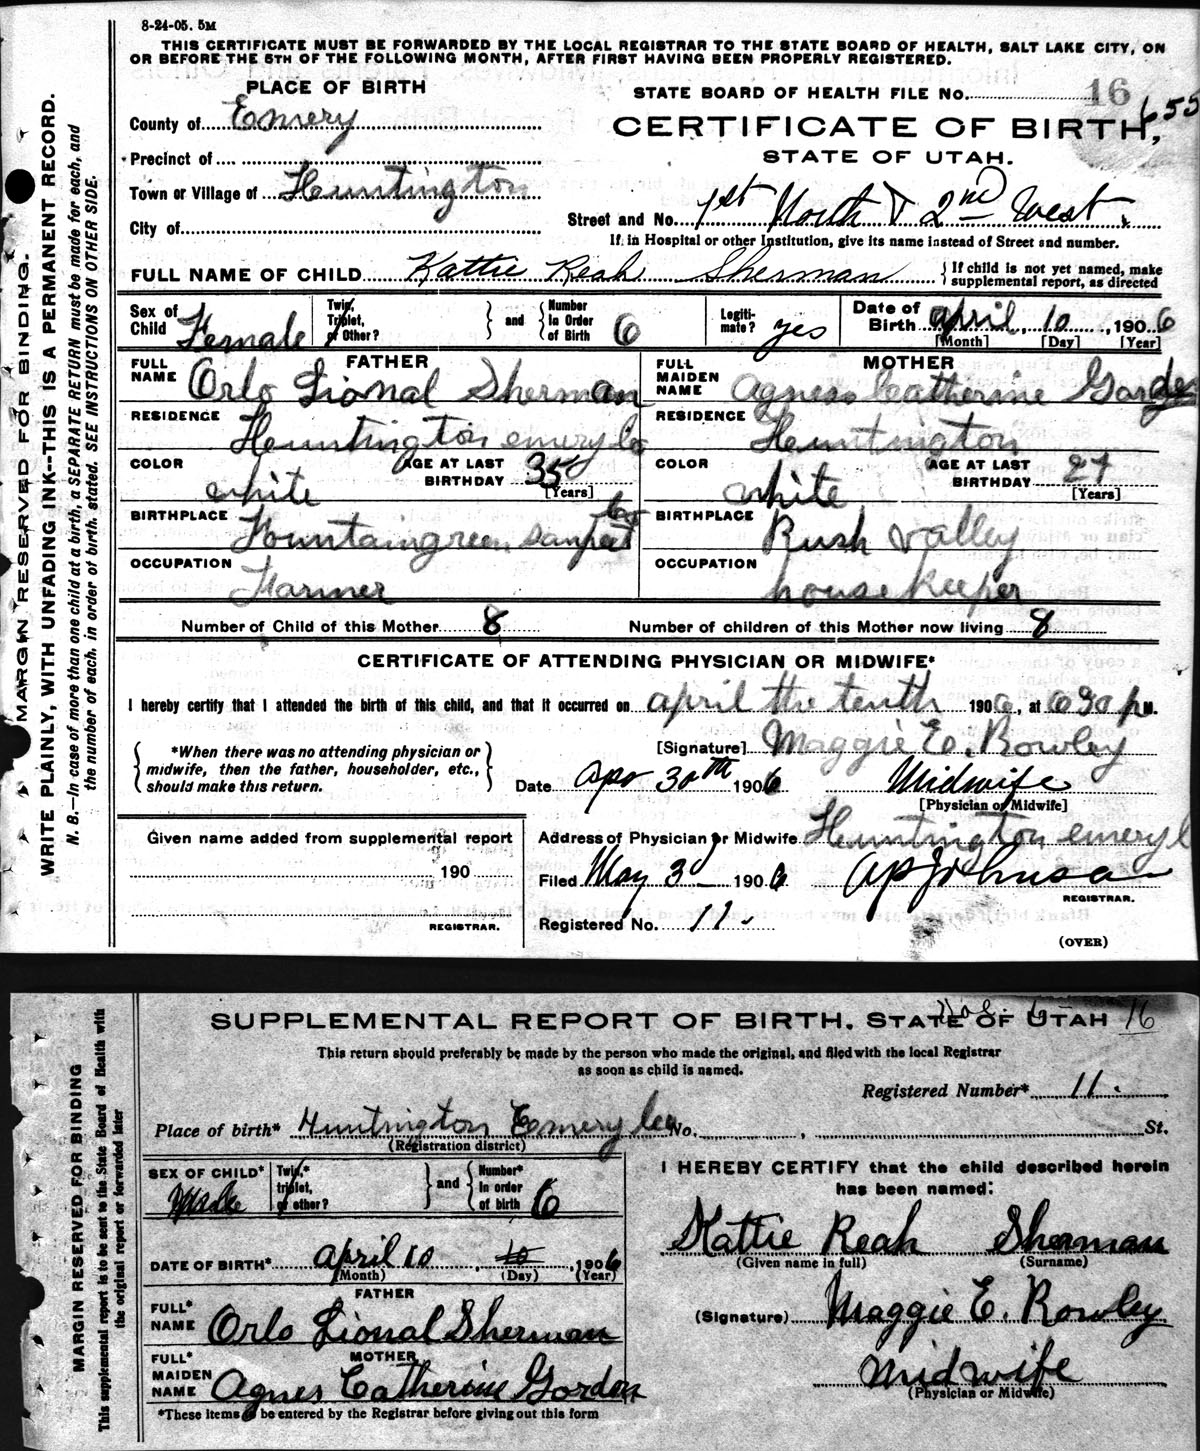 8-24-05. 5M
THIS CERTIFICATE MUST BE FORWARDED BY THE LOCAL REGISTRAR TO THE STATE BOARD OF HEALTH, SALT LAKE CITY, ON
OR BEFORE THE 5TH OF THE FOLLOWING MONTH, AFTER FIRST HAVING BEEN PROPERLY REGISTERED.
MARGIN RESERVED FOR BINDING.
WRITE PLAINLY, WITH UNFADING INK--THIS IS A PERMANENT RECORD.
N. B.—In case of more than one child at a birth, a SEPARATE RETURN must be made for each, and
the number of each, in order of birth, stated. SEE INSTRUCTIONS ON OTHER SIDE.
PLACE OF BIRTH
STATE BOARD OF HEALTH FILE No. 16
655
County of Emery
CERTIFICATE OF BIRTH,
STATE OF UTAH.
Precinct of
Town or Village of Huntington
Street and No. 1st North & 2nd West.
City of
If in Hospital or other Institution, give its name instead of Street and number.
FULL NAME OF CHILD Kattie Reah Sherman
If child is not yet named, make supplemental report, as directed
Sex of Child Female
Twin, Triplet, or Other?
and
Number In Order of Birth 6
Legiti-mate? yes
Date of Birth april 10, 1906
[Month] [Day] [Year]
FATHER
FULL NAME Orlo Lional Sherman
MOTHER
FULL MAIDEN NAME Agness Catherine Gorden
RESIDENCE Huntington emery Co
RESIDENCE Huntington
COLOR white AGE AT LAST BIRTHDAY 35 [Years]
COLOR white AGE AT LAST BIRTHDAY 27 [Years]
BIRTHPLACE Fountaingreen Sanpeet Co
BIRTHPLACE Rush valley
OCCUPATION Farmer
OCCUPATION housekeeper
Number of Child of this Mother 8 Number of children of this Mother now living 8
CERTIFICATE OF ATTENDING PHYSICIAN OR MIDWIFE*
I hereby certify that I attended the birth of this child, and that it occurred on april the tenth 1906, at 6 30 p M.
*When there was no attending physician or
midwife, then the father, householder, etc.,
should make this return.
[Signature] Maggie E. Rowley
Date Apr 30th 1906 Midwife
[Physician or Midwife]
Given name added from supplemental report
190
REGISTRAR.
Address of Physician or Midwife Huntington emery
Filed May 3d 1906
REGISTRAR.
Registered No. 11.
(OVER)
MARGIN RESERVED FOR BINDING
This supplemental report is to be sent to the State Board of Health with
the original report or forwarded later
SUPPLEMENTAL REPORT OF BIRTH. STATE OF UTAH 16
This return should preferably be made by the person who made the original, and filed with the local Registrar
as soon as child is named.
Registered Number* 11.
Place of birth* Huntington Emery Co No. , St.
(Registration district)
SEX OF CHILD*
Twin,* triplet, or other?
and
Number* in order of birth 6
I HEREBY CERTIFY that the child described herein
has been named:
Kattie Reah Sherman
(Given name in full) (Surname)
DATE OF BIRTH* april 10 10, 1906
(Month) (Day) (Year)
(Signature) Maggie E. Rowley
Midwife
(Physician or Midwife)
FATHER
FULL* NAME Orlo Lional Sherman
MOTHER
FULL* MAIDEN NAME Agnes Catherine Gorden
*These items to be entered by the Registrar before giving out this form